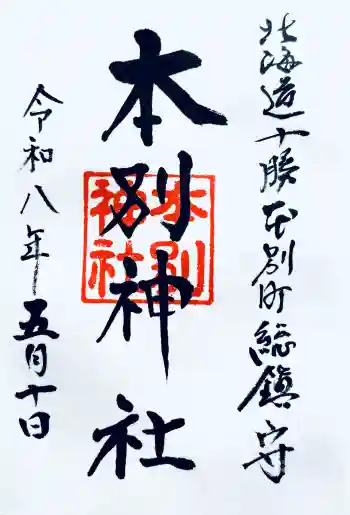 北海道十勝本別町総鎮守
本別神社
本別神社
令和八年五月十日